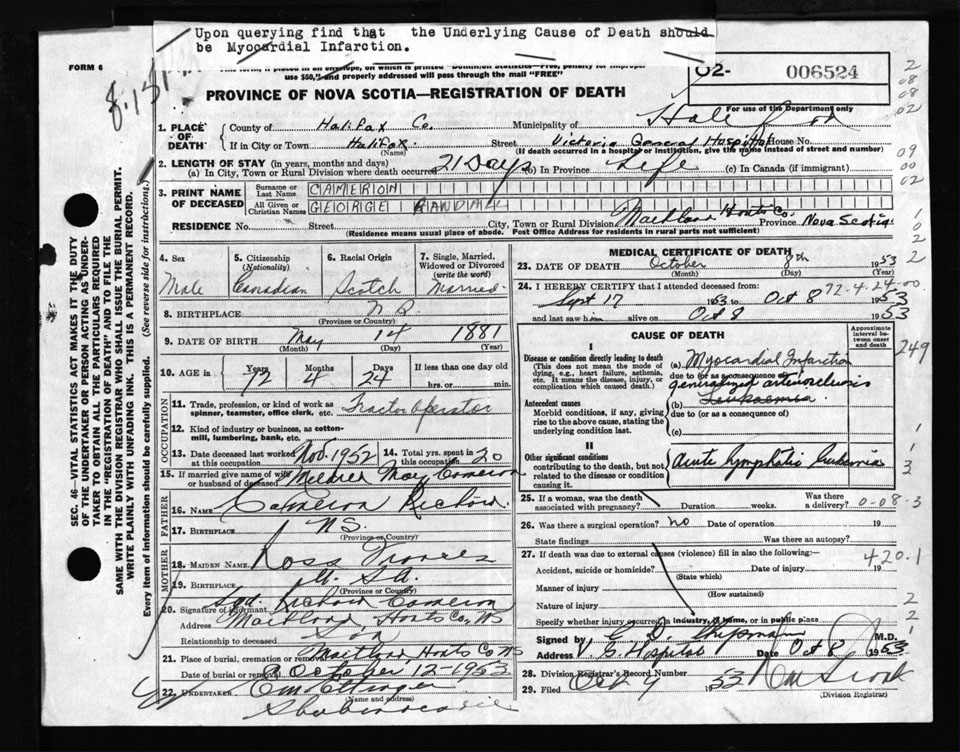 Upon querying find that the Underlying Cause of Death should
be Myocardial Infarction.
FORM 6
use $50, and properly addressed will pass through the mail "FREE"
02- 006524
PROVINCE OF NOVA SCOTIA—REGISTRATION OF DEATH
For use of the Department only
1. PLACE OF DEATH
County of Halifax Co. Municipality of
If in City or Town Halifax (Name) Street Victoria General Hospital House No.
(If death occurred in a hospital or institution, give the name instead of street and number)
2. LENGTH OF STAY (in years, months and days)
(a) In City, Town or Rural Division where death occurred 21 Days (b) In Province Life (c) In Canada (if immigrant)
3. PRINT NAME OF DECEASED
Surname or Last Name CAMERON
All Given or Christian Names GEORGE RANDALL
RESIDENCE No. Street City, Town or Rural Division Maitland Hants Co. Province Nova Scotia
(Residence means usual place of abode. Post Office Address for residents in rural parts not sufficient)
SEC. 46—VITAL STATISTICS ACT MAKES IT THE DUTY
OF THE UNDERTAKER OR PERSON ACTING AS UNDER-
TAKER TO OBTAIN ALL THE PARTICULARS REQUIRED
IN THE "REGISTRATION OF DEATH" AND TO FILE THE
SAME WITH THE DIVISION REGISTRAR WHO SHALL ISSUE THE BURIAL PERMIT.
WRITE PLAINLY WITH UNFADING INK. THIS IS A PERMANENT RECORD.
Every item of information should be carefully supplied. (See reverse side for instructions.)
4. Sex Male
5. Citizenship (Nationality) Canadian
6. Racial Origin Scotch
7. Single, Married, Widowed or Divorced (write the word) Married
8. BIRTHPLACE N.B. (Province or Country)
9. DATE OF BIRTH May (Month) 14 (Day) 1881 (Year)
10. AGE in Years 72 Months 4 Days 24 If less than one day hrs. or min.
OCCUPATION
11. Trade, profession, or kind of work as spinner, teamster, office clerk, etc. Tractor operator
12. Kind of industry or business, as cotton-mill, lumbering, bank, etc.
13. Date deceased last worked at this occupation Nov. 1952
14. Total yrs. spent in this occupation 20
15. If married give name of wife or husband of deceased Mildred May Cameron
FATHER
16. NAME Cameron Richard
17. BIRTHPLACE N.S. (Province or Country)
MOTHER
18. MAIDEN NAME Ross Frances
19. BIRTHPLACE U.S.A. (Province or Country)
20. Signature of informant Sgd. Richard Cameron
Address Maitland, Hants Co, NS
Relationship to deceased Son
21. Place of burial, cremation or removal Maitland Hants Co NS
Date of burial or removal October 12-1953
22. UNDERTAKER (Name and Address)
MEDICAL CERTIFICATE OF DEATH
23. DATE OF DEATH October (Month) 8th (Day) 1953 (Year)
24. I HEREBY CERTIFY that I attended deceased from: 72-4-24-00
Sept 17 1953 to Oct 8 1953
and last saw him alive on Oct 8 1953
CAUSE OF DEATH
Approximate interval between onset and death
I
Disease or condition directly leading to death (This does not mean the mode of dying, e.g., heart failure, asthenia, etc. It means the disease, injury, or complication which caused death.)
(a) Myocardial Infarction
due to (or as a consequence of)
generalized arteriosclerosis
Antecedent causes
Morbid conditions, if any, giving rise to the above cause, stating the underlying condition last.
(b) Leukaemia
due to (or as a consequence of)
(c)
II
Other significant conditions contributing to the death, but not related to the disease or condition causing it.
Acute lymphatic leukemia
25. If a woman, was the death associated with pregnancy? Duration weeks. Was there a delivery?
0-08-3
26. Was there a surgical operation? no Date of operation 19
State findings Was there an autopsy?
27. If death was due to external causes (violence) fill in also the following:—
420.1
Accident, suicide or homicide? (State which) Date of injury 19
Manner of injury (How sustained)
Nature of injury
Specify whether injury occurred in industry, in home, or in public place
Signed by M.D.
Address V. G. Hospital Date Oct 8 1953
28. Division Registrar's Record Number
29. Filed Oct 9 1953 (Division Registrar)
249